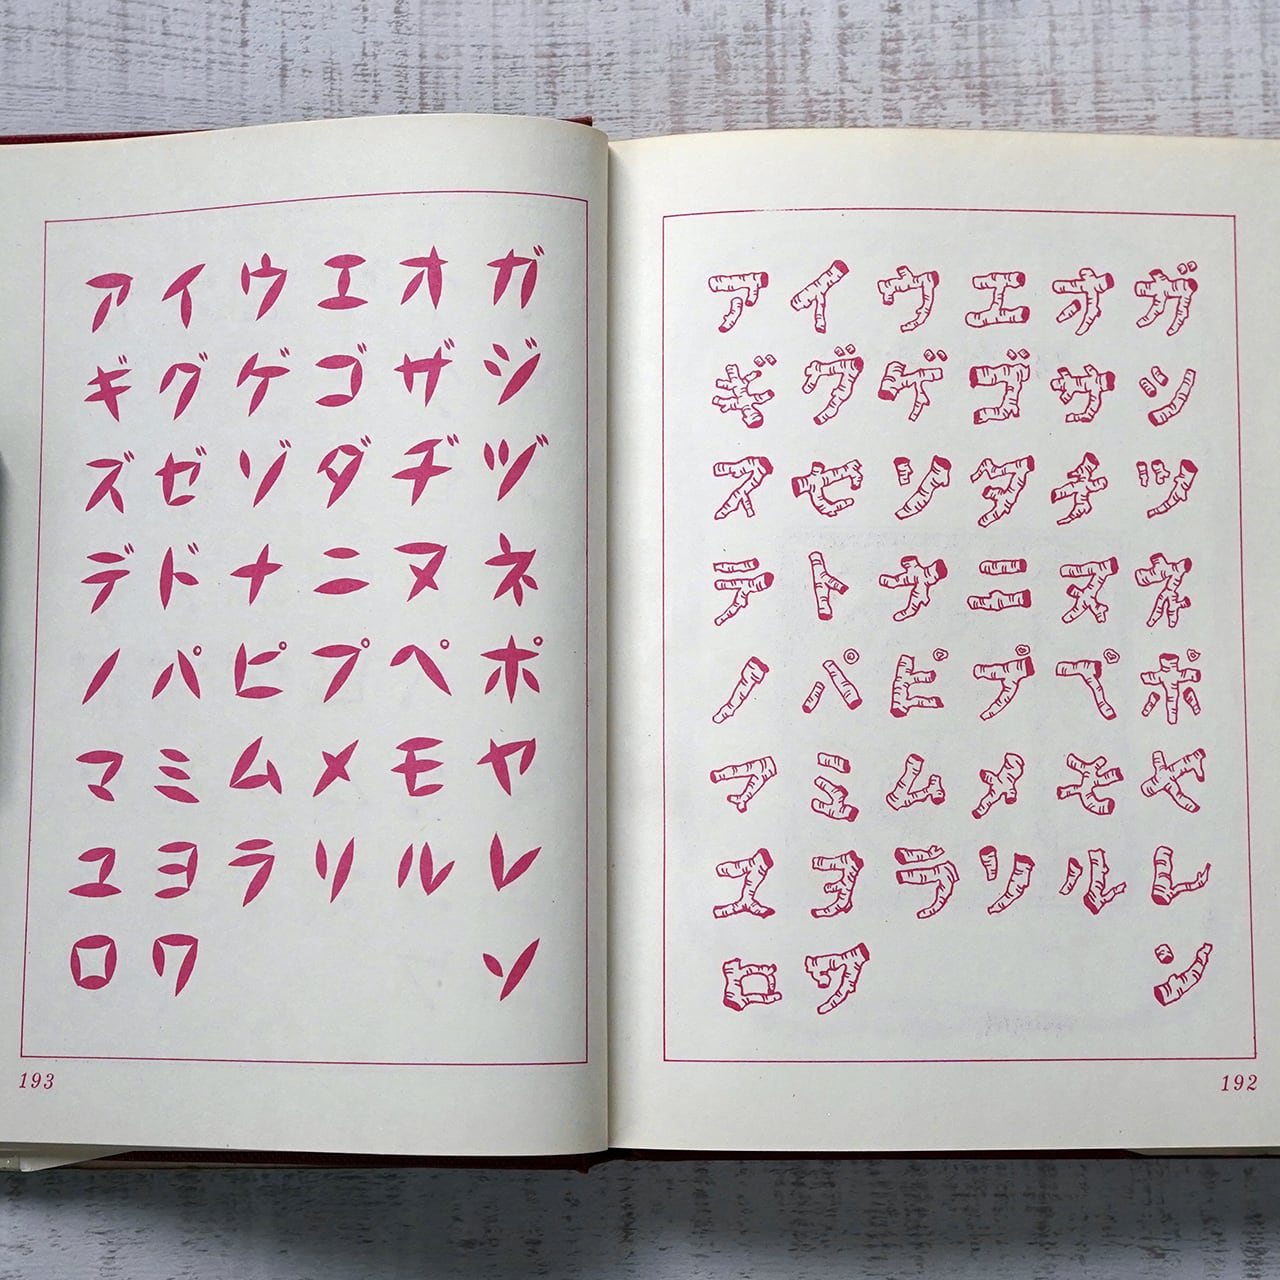 アイウエオガ
ギグゲゴサシ
スセソタチツ
テトナニヌネ
ノパピプペポ
マミムメモヤ
ユヨラリルレ
ロワン
192
アイウエオガ
ギグゲゴザジ
ズゼゾダヂヅ
デドナニヌネ
ノパピプペポ
マミムメモヤ
ユヨラリルレ
ロワン
193